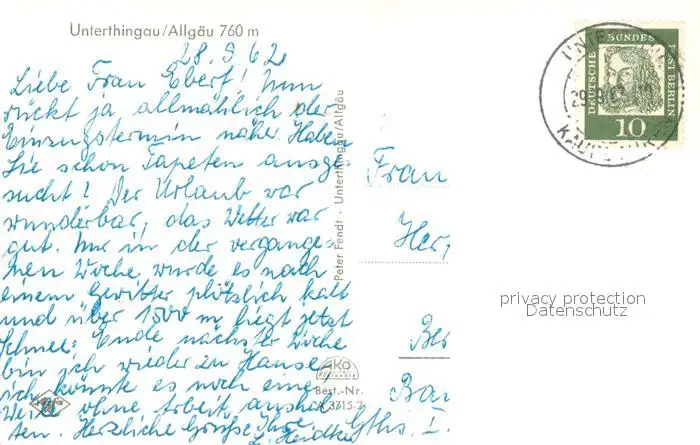 Unterthingau/Allgäu 760 m
28.9.62
Liebe Frau Ebert! Nun
rückt ja allmählich der
Einzugstermin näher. Haben
Sie schon Tapeten ausge-
sucht? Der Urlaub war
wunderbar, das Wetter war
gut. Nur in der vergange-
nen Woche wurde es nach
einem Gewitter plötzlich kalt
und über 1500 m liegt jetzt
Schnee. Ende nächster Woche
bin ich wieder zu Hause,
ich könnte es noch eine
Weile ohne Arbeit aushal-
ten. Herzliche Grüße Ihre
Peter Fendt · Unterthingau/Allgäu
Best.-Nr.
DEUTSCHE BUNDESPOST BERLIN
10
Frau
Her
Ber
privacy protection
Datenschutz